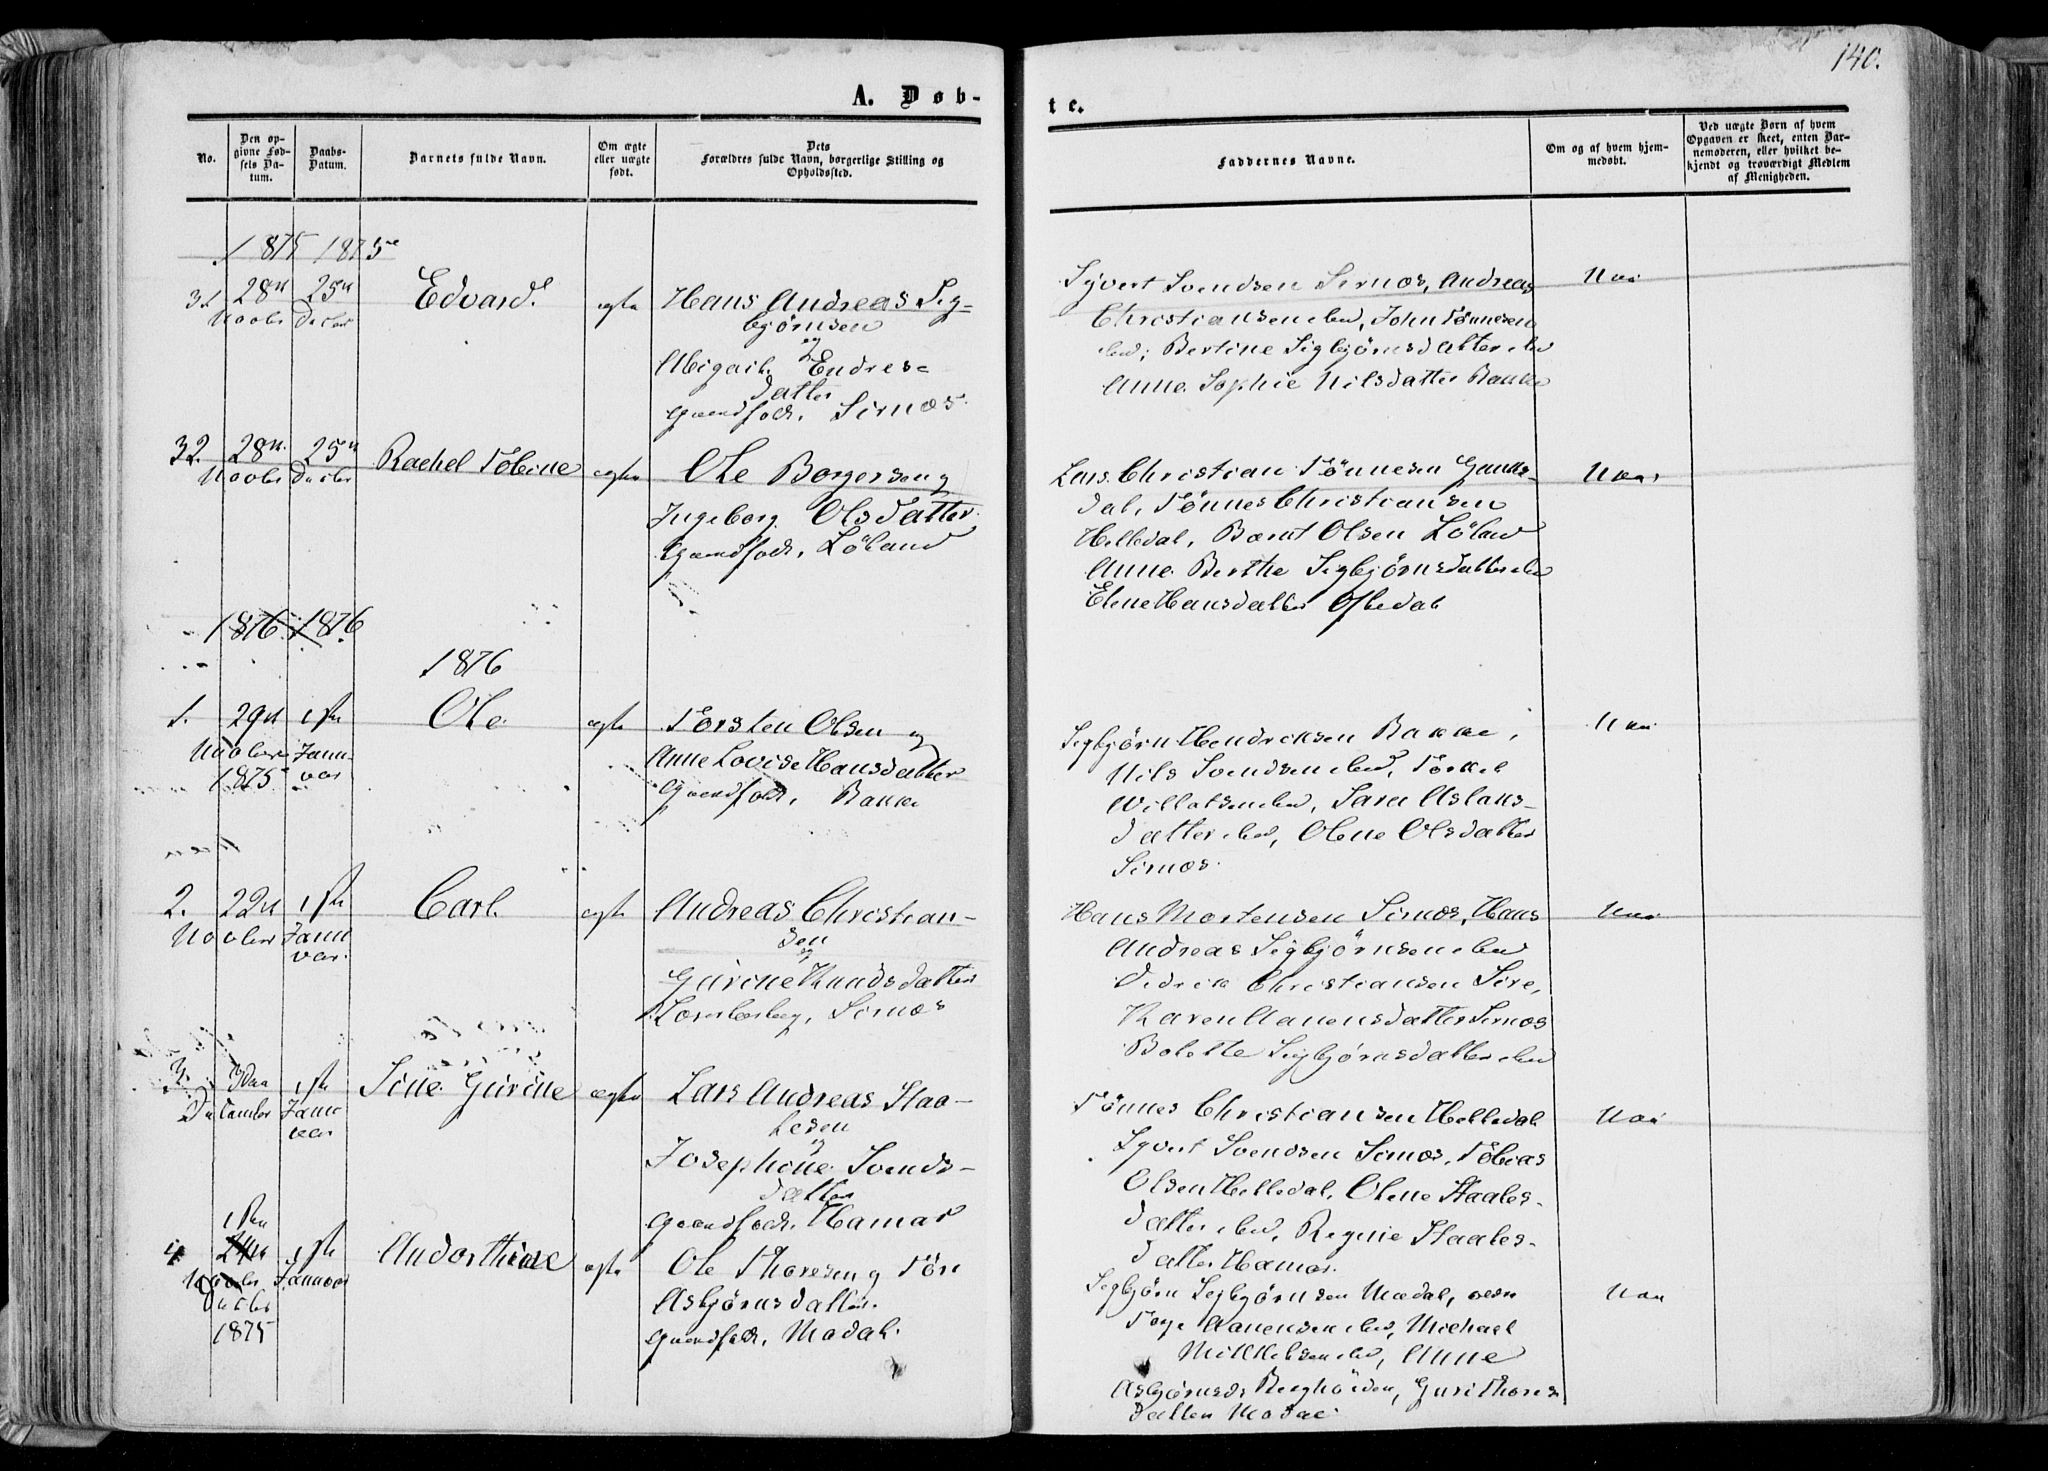 140.
A. Døb-
te.
No.
Den op-
givne Fød-
sels Da-
tum.
Daabs-
Datum.
Barnets fulde Navn.
Om ægte
eller uægte
født.
Dets
Forældres fulde Navn, borgerlige Stilling og
Opholdssted.
Faddernes Navne.
Om og af hvem hjem-
medøbt.
Ved uægte Børn af hvem
Opgaven er skeet, enten Bar-
nemoderen, eller hvilket be-
kjendt og troværdigt Medlem
af Menigheden.
1875 1875
31 28de 25de Edvard. ægte Hans Andreas Sig-
Novbr Decbr bjørnsen
og
Abigail Endres-
datter
Gaardfolk, Sirnæs.
Syvert Svendsen Sirnæs, Andreas
Christiansen ibid, John Tønnesen
ibid, Bertine Sigbjørnsdatter ibid
Anne Sophie Nilsdatter Bakke
Nei
32. 28de 25de Rachel Tobine ægte Ole Borgersen og
Novbr Decbr
Ingeborg Olsdatter
Gaardfolk, Løland
Lars Christian Tønnesen
dal, Tønnes Christiansen
Helledal, Bernt Olsen Løland
Anne Berthe Sigbjørnsdatter ibid
Elene Hansdatter Oftedal
Nei
1876 1876
1876
1. 29de 1ste Ole ægte Torsten Olsen og
Novber Janu- Anne Lovise Hansdatter
1875 var Gaardfolk, Bakke
Sigbjørn Hendriksen Bakke,
Nils Svendsen ibid, Torkel
Willatsen ibid, Sara Aslaks-
datter ibid, Olene Olsdatter
Sirnæs.
Nei
2. 22de 1ste Carl. ægte Andreas Christian-
Novber Janu sen
var. og
Gurine Knudsdatter
Sirnæs
Hans Mortensen Sirnæs, Hans
Andreas Sigbjørnsen ibid
Didrik Christiansen Sire,
Karen Aanensdatter Sirnæs
Bolette Sigbjørnsdatter ibid
Nei
3. 3die 1ste Sine Gurine ægte Lars Andreas Staa-
December Janu lesen
var og
Josephine Svends-
datter
Gaardfolk, Hamar
Tønnes Christiansen Helledal
Syvert Svendsen Sirnæs, Tobias
Olsen Helledal, Olene Staales-
datter ibid, Regine Staales-
datter Hamar.
Nei
1ste
4 24de 1ste Andorthine ægte Ole Thoresen og Tore
Novbr Januar Asbjørnsdatter.
Decbr
1875 Gaardfolk, Modal.
Sigbjørn Sigbjørnsen Modal,
Tage Aanensen ibid, Michael
Mikkelsen ibid, Anne
Asbjørnsd. Gurithores
datter Modal
Nei